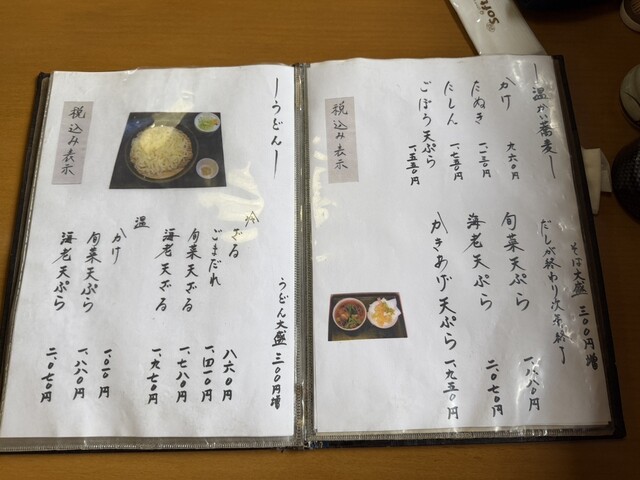 ー温かい蕎麦ー
そば大盛 三〇〇円増
だしが終わり次第終了
かけ 九六〇円
たぬき 一、一三〇円
にしん 一、七五〇円
ごぼう天ぷら 一、五五〇円
旬菜天ぷら 一、八八〇円
海老天ぷら 二、〇七〇円
かきあげ天ぷら 一、九五〇円
税込み表示
ーうどんー
うどん大盛 三〇〇円増
冷
ざる 八六〇円
ごまだれ 一、四〇〇円
旬菜天ざる 一、七八〇円
海老天ざる 一、九七〇円
温
かけ 一、〇一〇円
旬菜天ぷら 一、八八〇円
海老天ぷら 二、〇七〇円
税込み表示
Soft